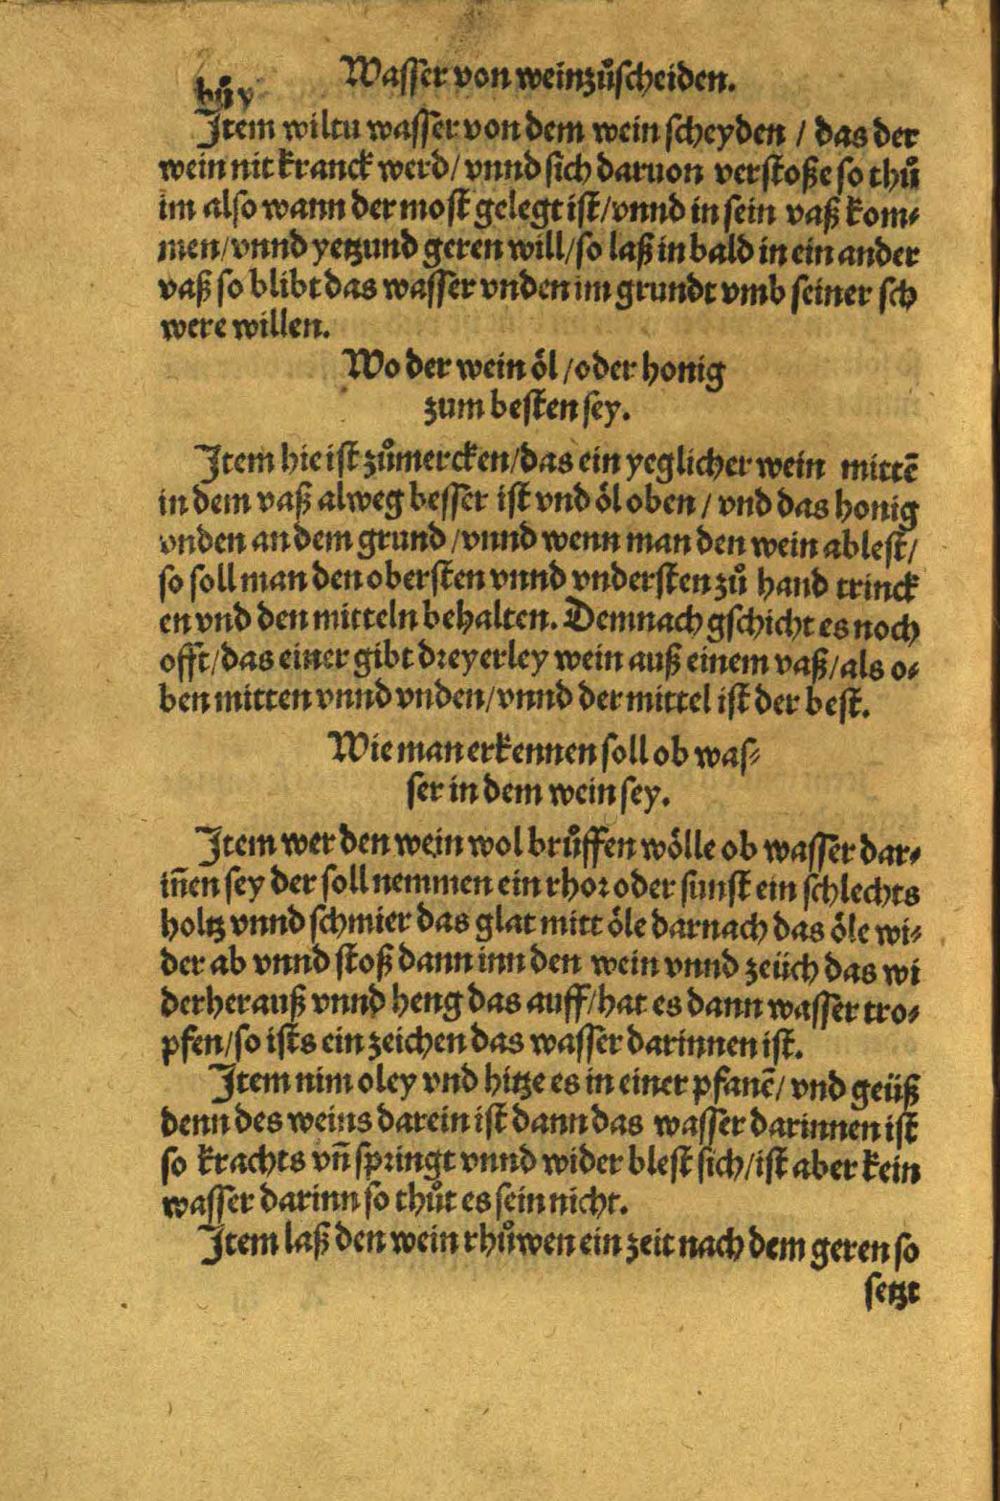 Wasser von weinzůscheiden.
Item wiltu wasser von dem wein scheyden / das der
wein nit kranck werd / vnnd sich daruon verstoße so thů
im also wann der most gelegt ist / vnnd in sein vaß kom⸗
men / vnnd yetzund geren will / so laß in bald in ein ander
vaß so blibt das wasser vnden im grundt vmb seiner sch
were willen.
Wo der wein öl / oder honig
zum besten sey.
Item hie ist zůmercken / das ein yeglicher wein mittē
in dem vaß alweg besser ist vnd öl oben / vnd das honig
vnden an dem grund / vnnd wenn man den wein ablest /
so soll man den obersten vnnd vndersten zů hand trinck
en vnd den mitteln behalten. Demnach gschicht es noch
offt / das einer gibt dreyerley wein auß einem vaß / als o⸗
ben mitten vnnd vnden / vnnd der mittel ist der best.
Wie man erkennen soll ob was⸗
ser in dem wein sey.
Item wer den wein wol brůffen wölle ob wasser dar⸗
iñen sey der soll nemmen ein rhor oder sunst ein schlechts
holtz vnnd schmier das glat mitt öle darnach das öle wi⸗
der ab vnnd stoß dann inn den wein vnnd zeüch das wi
der herauß vnnd heng das auff / hat es dann wasser tro⸗
pfen / so ists ein zeichen das wasser darinnen ist.
Item nim oley vnd hitze es in einer pfanē / vnd geüß
denn des weins darein ist dann das wasser darinnen ist
so krachts vñ springt vnnd wider blest sich / ist aber kein
wasser darinn so thůt es sein nicht.
Item laß den wein rhůwen ein zeit nach dem geren so
setzt